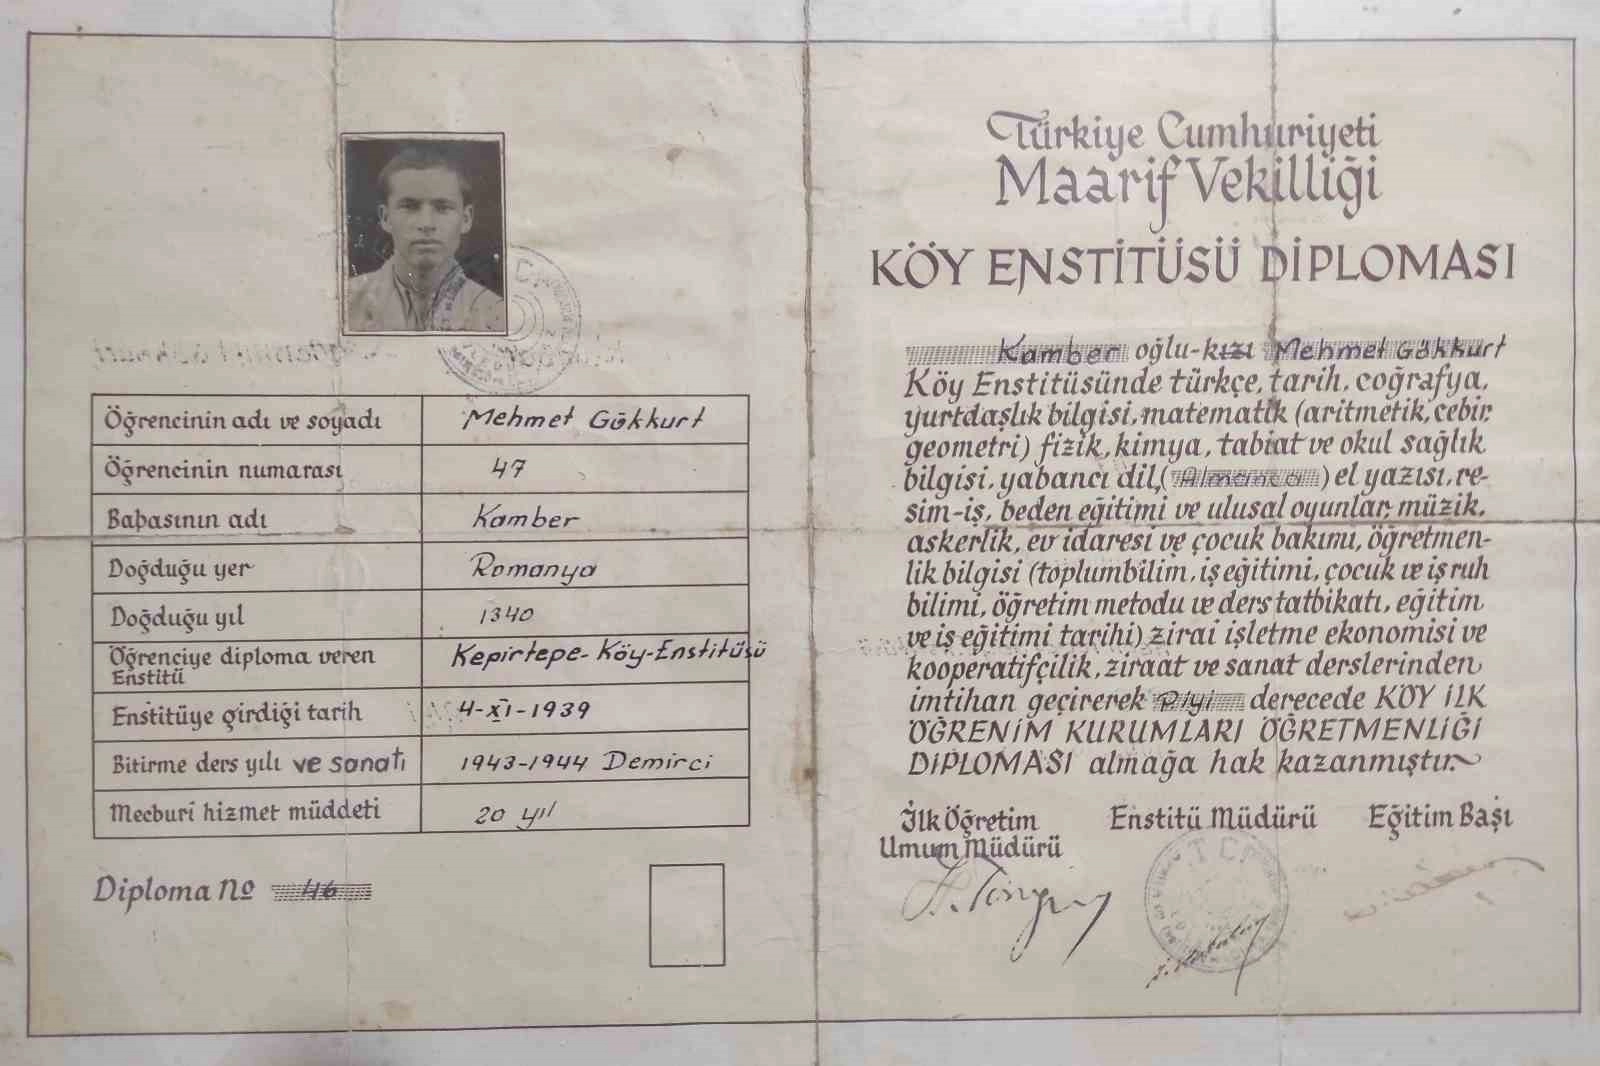 Öğrencinin adı ve soyadı Mehmet Gökkurt
Öğrencinin numarası 47
Babasının adı Kamber
Doğduğu yer Romanya
Doğduğu yıl 1340
Öğrenciye diploma veren Enstitü Kepirtepe-Köy-Enstitüsü
Enstitüye girdiği tarih 4-XI-1939
Bitirme ders yılı ve sanatı 1943-1944 Demirci
Mecburî hizmet müddeti 20 yıl
Diploma No 46
Türkiye Cumhuriyeti
Maarif Vekilliği
KÖY ENSTİTÜSÜ DİPLOMASI
Kamber oğlu-kızı Mehmet Gökkurt
Köy Enstitüsünde türkçe, tarih, coğrafya,
yurtdaşlık bilgisi, matematik (aritmetik, cebir,
geometri) fizik, kimya, tabiat ve okul sağlık
bilgisi, yabancı dil, (Almanca) el yazısı, re-
sim-iş, beden eğitimi ve ulusal oyunlar, müzik,
askerlik, ev idaresi ve çocuk bakımı, öğretmen-
lik bilgisi (toplumbilim, iş eğitimi, çocuk ve iş ruh
bilimi, öğretim metodu ve ders tatbikatı, eğitim
ve iş eğitimi tarihi) zirai işletme ekonomisi ve
kooperatifçilik, ziraat ve sanat derslerinden
imtihan geçirerek Piyi derecede KÖY İLK
ÖĞRENİM KURUMLARI ÖĞRETMENLİĞİ
DİPLOMASI almağa hak kazanmıştır.
İlk Öğretim Enstitü Müdürü Eğitim Başı
Umum Müdürü
T C